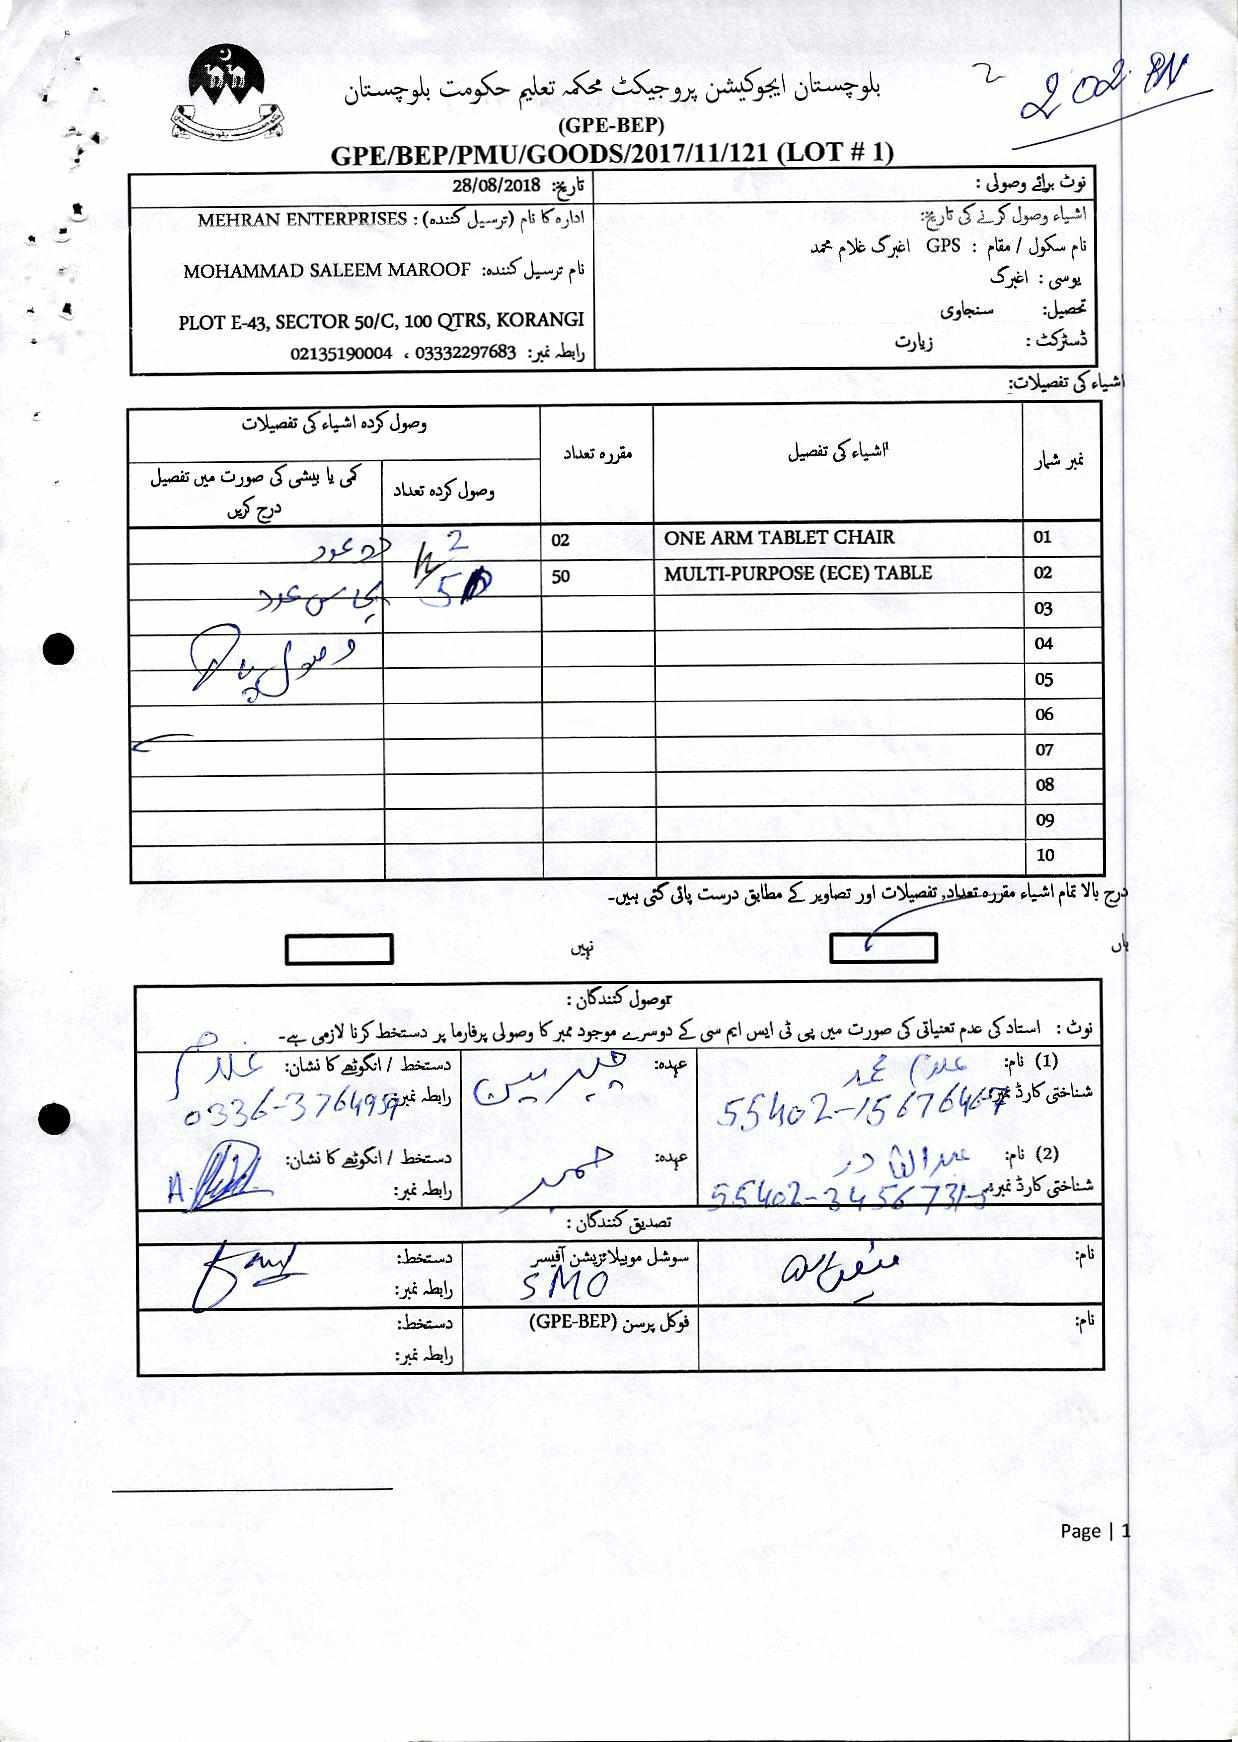 2 202 BN
بلوچستان ایجوکیشن پروجیکٹ محکمہ تعلیم حکومت بلوچستان
(GPE-BEP)
GPE/BEP/PMU/GOODS/2017/11/121 (LOT # 1)
نوٹ برائے وصولی :
اشیاء وصول کرنے کی تاریخ:
نام سکول / مقام : GPS اغبرگ غلام محمد
یوسی : اغبرگ
تحصیل: سنجاوی
ڈسٹرکٹ : زیارت
تاریخ: 28/08/2018
ادارہ کا نام (ترسیل کنندہ) : MEHRAN ENTERPRISES
نام ترسیل کنندہ: MOHAMMAD SALEEM MAROOF
PLOT E-43, SECTOR 50/C, 100 QTRS, KORANGI
رابطہ نمبر: 03332297683 ، 02135190004
اشیاء کی تفصیلات:
نمبر شمار اشیاء کی تفصیل مقررہ تعداد وصول کردہ اشیاء کی تفصیلات
وصول کردہ تعداد کمی یا بیشی کی صورت میں تفصیل درج کریں
01 ONE ARM TABLET CHAIR 02 2 دو عدد
02 MULTI-PURPOSE (ECE) TABLE 50 50 پچاس عدد
03
04 وصول پایا
05
06
07
08
09
10
درج بالا تمام اشیاء مقررہ تعداد, تفصیلات اور تصاویر کے مطابق درست پائی گئی ہیں۔
ہاں نہیں
وصول کنندگان :
نوٹ : استاد کی عدم تعنیاتی کی صورت میں پی ٹی ایس ایم سی کے دوسرے موجود ممبر کا وصولی پرفارما پر دستخط کرنا لازمی ہے۔
(1) نام: غلام محمد عہدہ: چیرمین دستخط / انگوٹھے کا نشان: غلام
شناختی کارڈ نمبر: 55402-1567646 رابطہ نمبر: 0336-3764959
(2) نام: عبدالقادر عہدہ: ممبر دستخط / انگوٹھے کا نشان:
شناختی کارڈ نمبر: 55402-3456731-5 رابطہ نمبر:
تصدیق کنندگان :
نام: سوشل موبیلائزیشن آفیسر دستخط:
SMO رابطہ نمبر:
نام: فوکل پرسن (GPE-BEP) دستخط:
رابطہ نمبر:
Page | 1